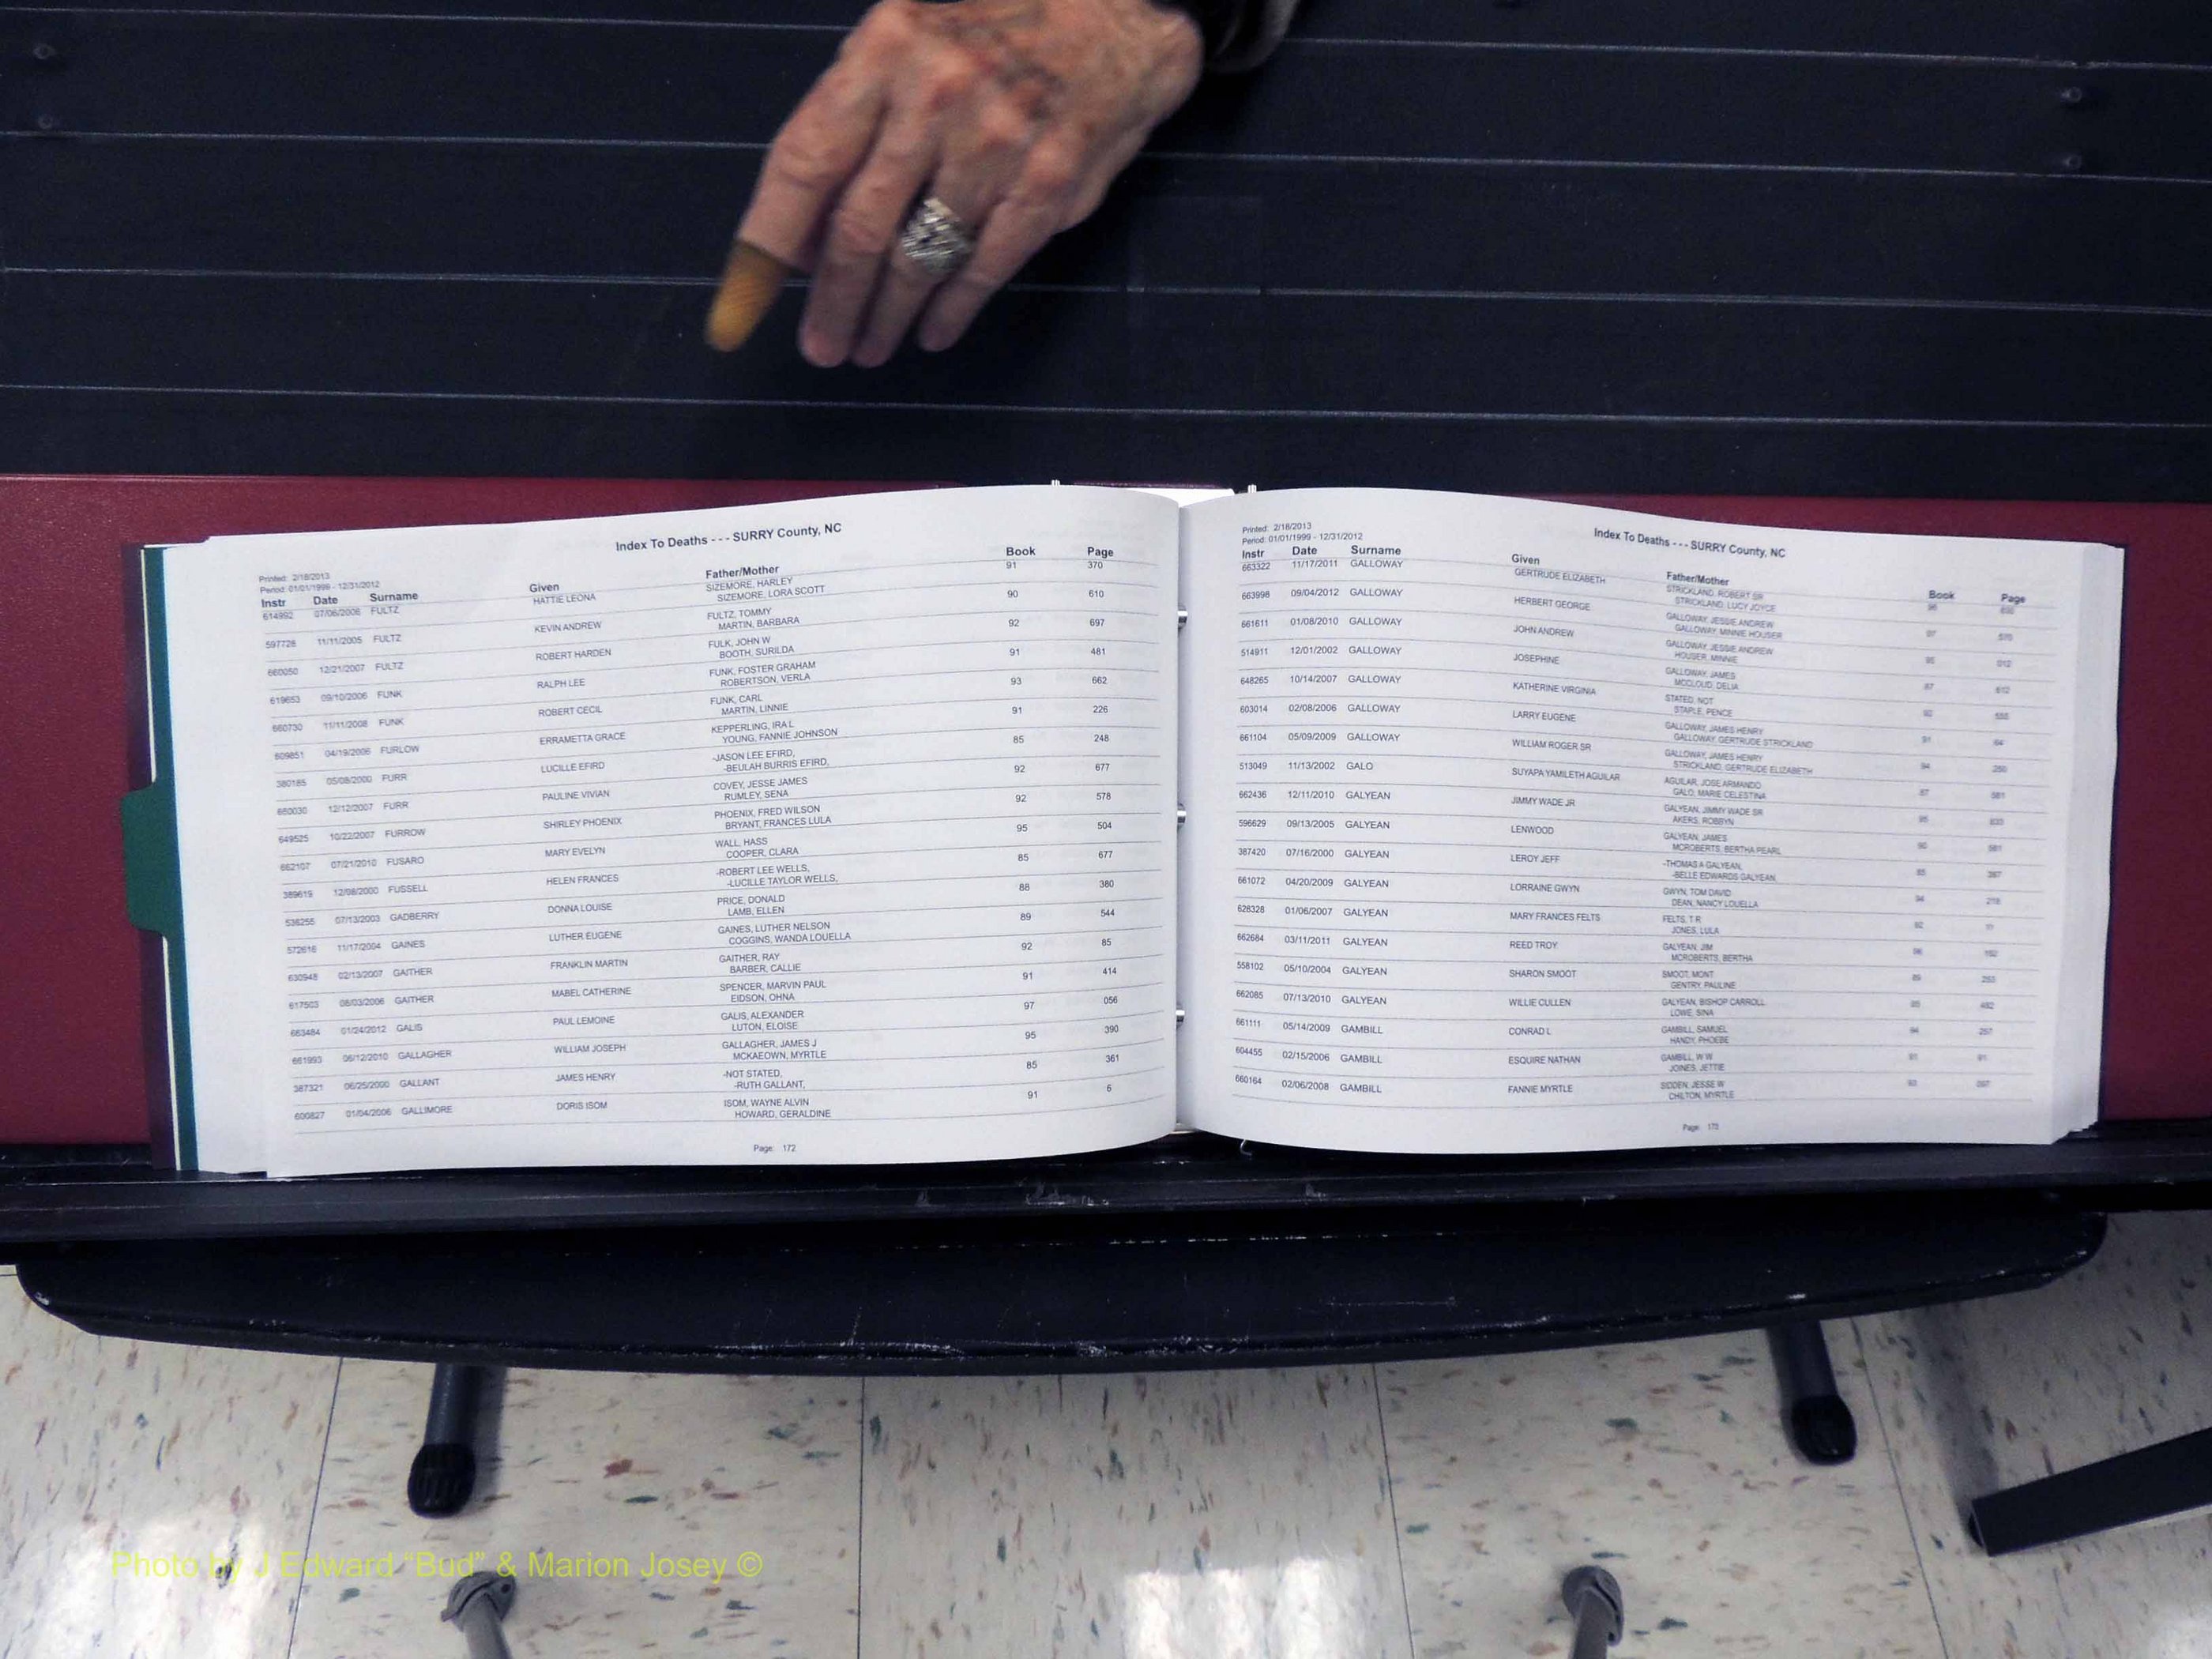 Index To Deaths - - - SURRY County, NC
Printed: 2/18/2013
Period: 01/01/1999 - 12/31/2012
Instr Date Surname Given Father/Mother Book Page
614992 07/06/2006 FULTZ HATTIE LEONA SIZEMORE, HARLEY 91 370
SIZEMORE, LORA SCOTT
597728 11/11/2005 FULTZ KEVIN ANDREW FULTZ, TOMMY 90 610
MARTIN, BARBARA
660050 12/21/2007 FULTZ ROBERT HARDEN FULK, JOHN W 92 697
BOOTH, SURILDA
619653 09/10/2006 FUNK RALPH LEE FUNK, FOSTER GRAHAM 91 481
ROBERTSON, VERLA
660730 11/11/2008 FUNK ROBERT CECIL FUNK, CARL 93 662
MARTIN, LINNIE
609851 04/19/2006 FURLOW ERRAMETTA GRACE KEPPERLING, IRA L 91 226
YOUNG, FANNIE JOHNSON
380185 05/08/2000 FURR LUCILLE EFIRD -JASON LEE EFIRD, 85 248
-BEULAH BURRIS EFIRD,
660030 12/12/2007 FURR PAULINE VIVIAN COVEY, JESSE JAMES 92 677
RUMLEY, SENA
649525 10/22/2007 FURROW SHIRLEY PHOENIX PHOENIX, FRED WILSON 92 578
BRYANT, FRANCES LULA
662107 07/21/2010 FUSARO MARY EVELYN WALL, HASS 95 504
COOPER, CLARA
389619 12/08/2000 FUSSELL HELEN FRANCES -ROBERT LEE WELLS, 85 677
-LUCILLE TAYLOR WELLS,
536255 07/13/2003 GADBERRY DONNA LOUISE PRICE, DONALD 88 380
LAMB, ELLEN
572616 11/17/2004 GAINES LUTHER EUGENE GAINES, LUTHER NELSON 89 544
COGGINS, WANDA LOUELLA
630948 02/13/2007 GAITHER FRANKLIN MARTIN GAITHER, RAY 92 85
BARBER, CALLIE
617503 08/03/2006 GAITHER MABEL CATHERINE SPENCER, MARVIN PAUL 91 414
EIDSON, OHNA
663484 01/24/2012 GALIS PAUL LEMOINE GALIS, ALEXANDER 97 056
LUTON, ELOISE
661993 06/12/2010 GALLAGHER WILLIAM JOSEPH GALLAGHER, JAMES J 95 390
MCKAEOWN, MYRTLE
387321 06/25/2000 GALLANT JAMES HENRY -NOT STATED, 85 361
-RUTH GALLANT,
600827 01/04/2006 GALLIMORE DORIS ISOM ISOM, WAYNE ALVIN 91 6
HOWARD, GERALDINE
Page: 172
Index To Deaths - - - SURRY County, NC
Printed: 2/18/2013
Period: 01/01/1999 - 12/31/2012
Instr Date Surname Given Father/Mother Book Page
663322 11/17/2011 GALLOWAY GERTRUDE ELIZABETH STRICKLAND, ROBERT SR
STRICKLAND, LUCY JOYCE
663998 09/04/2012 GALLOWAY HERBERT GEORGE GALLOWAY, JESSIE ANDREW 97 570
GALLOWAY, MINNIE HOUSER
661611 01/08/2010 GALLOWAY JOHN ANDREW GALLOWAY, JESSIE ANDREW 95 012
HOUSER, MINNIE
514911 12/01/2002 GALLOWAY JOSEPHINE GALLOWAY, JAMES 87 612
MCCLOUD, DELIA
648265 10/14/2007 GALLOWAY KATHERINE VIRGINIA STATED, NOT 92 555
STAPLE, PENCE
603014 02/08/2006 GALLOWAY LARRY EUGENE GALLOWAY, JAMES HENRY 91 64
GALLOWAY, GERTRUDE STRICKLAND
661104 05/09/2009 GALLOWAY WILLIAM ROGER SR GALLOWAY, JAMES HENRY 94 250
STRICKLAND, GERTRUDE ELIZABETH
513049 11/13/2002 GALO SUYAPA YAMILETH AGUILAR AGUILAR, JOSE ARMANDO 87 581
GALO, MARIE CELESTINA
662436 12/11/2010 GALYEAN JIMMY WADE JR GALYEAN, JIMMY WADE SR 95
AKERS, ROBBYN
596629 09/13/2005 GALYEAN LENWOOD GALYEAN, JAMES 90
MCROBERTS, BERTHA PEARL
387420 07/16/2000 GALYEAN LEROY JEFF -THOMAS A GALYEAN, 85 367
-BELLE EDWARDS GALYEAN,
661072 04/20/2009 GALYEAN LORRAINE GWYN GWYN, TOM DAVID 94 218
DEAN, NANCY LOUELLA
628328 01/06/2007 GALYEAN MARY FRANCES FELTS FELTS, T R 92 11
JONES, LULA
662684 03/11/2011 GALYEAN REED TROY GALYEAN, JIM 96 192
MCROBERTS, BERTHA
558102 05/10/2004 GALYEAN SHARON SMOOT SMOOT, MONT 89 253
GENTRY, PAULINE
662085 07/13/2010 GALYEAN WILLIE CULLEN GALYEAN, BISHOP CARROLL 95 482
LOWE, SINA
661111 05/14/2009 GAMBILL CONRAD L GAMBILL, SAMUEL 94 257
HANDY, PHOEBE
604455 02/15/2006 GAMBILL ESQUIRE NATHAN GAMBILL, W W 91 91
JOINES, JETTIE
660164 02/06/2008 GAMBILL FANNIE MYRTLE SIDDEN, JESSE W 93
CHILTON, MYRTLE
Page: 173
Photo by J Edward “Bud” & Marion Josey ©